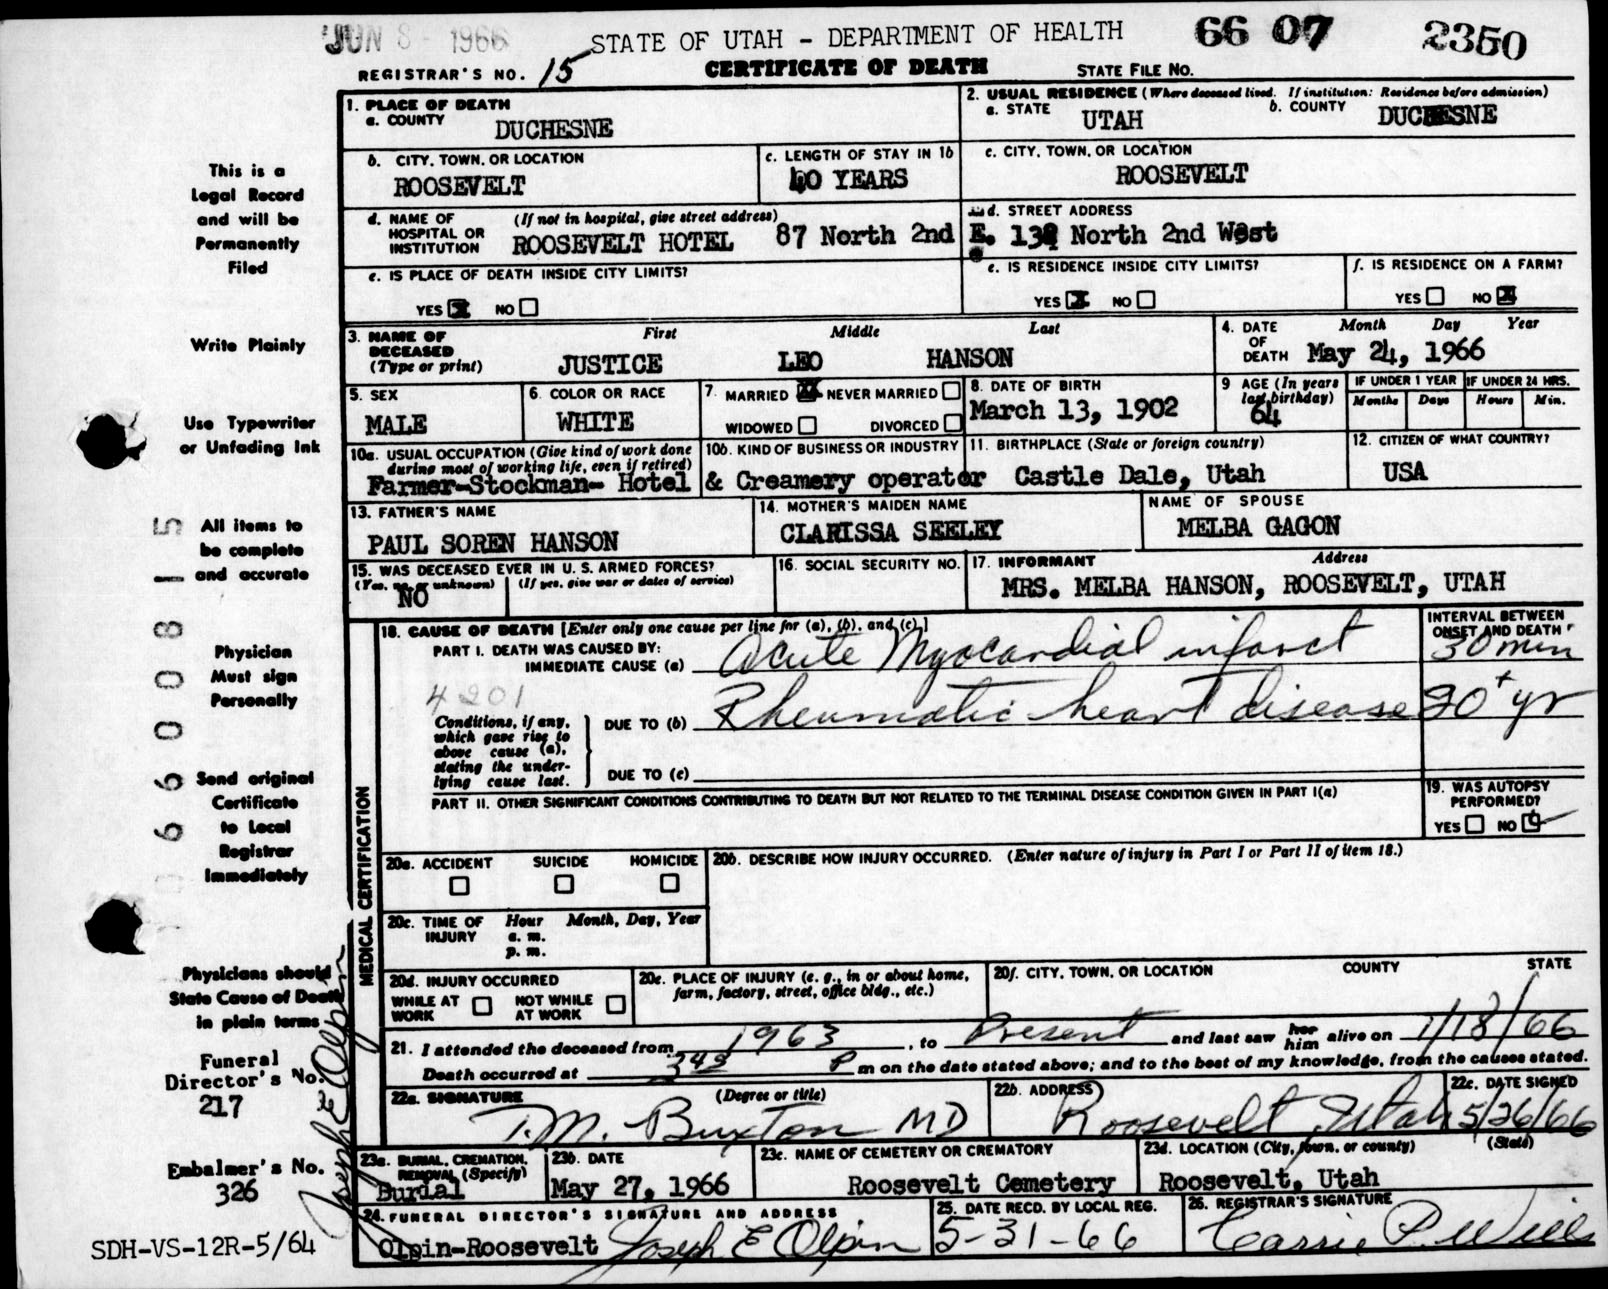 JUN 8 - 1966
STATE OF UTAH - DEPARTMENT OF HEALTH
66 07 2350
REGISTRAR'S NO. 15
CERTIFICATE OF DEATH
STATE FILE No.
1. PLACE OF DEATH
a. COUNTY
DUCHESNE
2. USUAL RESIDENCE (Where deceased lived. If institution: Residence before admission)
a. STATE
UTAH
b. COUNTY
DUCHESNE
b. CITY, TOWN, OR LOCATION
ROOSEVELT
c. LENGTH OF STAY IN 1b
40 YEARS
c. CITY, TOWN, OR LOCATION
ROOSEVELT
d. NAME OF HOSPITAL OR INSTITUTION
(If not in hospital, give street address)
ROOSEVELT HOTEL 87 North 2nd E.
d. STREET ADDRESS
138 North 2nd West
e. IS PLACE OF DEATH INSIDE CITY LIMITS?
YES X NO
e. IS RESIDENCE INSIDE CITY LIMITS?
YES X NO
f. IS RESIDENCE ON A FARM?
YES NO X
3. NAME OF DECEASED
(Type or print)
First Middle Last
JUSTICE LEO HANSON
4. DATE OF DEATH
Month Day Year
May 24, 1966
5. SEX
MALE
6. COLOR OR RACE
WHITE
7. MARRIED XX NEVER MARRIED
WIDOWED DIVORCED
8. DATE OF BIRTH
March 13, 1902
9 AGE (In years last birthday)
64
IF UNDER 1 YEAR
Months Days
IF UNDER 24 HRS.
Hours Min.
10a. USUAL OCCUPATION (Give kind of work done during most of working life, even if retired)
Farmer-Stockman- Hotel
10b. KIND OF BUSINESS OR INDUSTRY
& Creamery operator
11. BIRTHPLACE (State or foreign country)
Castle Dale, Utah
12. CITIZEN OF WHAT COUNTRY?
USA
13. FATHER'S NAME
PAUL SOREN HANSON
14. MOTHER'S MAIDEN NAME
CLARISSA SEELEY
NAME OF SPOUSE
MELBA GAGON
15. WAS DECEASED EVER IN U. S. ARMED FORCES?
(Yes, no, or unknown) (If yes, give war or dates of service)
NO
16. SOCIAL SECURITY NO.
17. INFORMANT Address
MRS. MELBA HANSON, ROOSEVELT, UTAH
MEDICAL CERTIFICATION
18. CAUSE OF DEATH [Enter only one cause per line for (a), (b), and (c).]
INTERVAL BETWEEN ONSET AND DEATH
PART I. DEATH WAS CAUSED BY:
IMMEDIATE CAUSE (a) Acute Myocardial infarct 30 min
4201
Conditions, if any, which gave rise to above cause (a), stating the underlying cause last.
DUE TO (b) Rheumatic heart disease 20+ yr
DUE TO (c)
PART II. OTHER SIGNIFICANT CONDITIONS CONTRIBUTING TO DEATH BUT NOT RELATED TO THE TERMINAL DISEASE CONDITION GIVEN IN PART I(a)
19. WAS AUTOPSY PERFORMED?
YES NO
20a. ACCIDENT SUICIDE HOMICIDE
20b. DESCRIBE HOW INJURY OCCURRED. (Enter nature of injury in Part I or Part II of item 18.)
20c. TIME OF INJURY
Hour Month, Day, Year
a. m.
p. m.
20d. INJURY OCCURRED
WHILE AT WORK NOT WHILE AT WORK
20e. PLACE OF INJURY (e. g., in or about home, farm, factory, street, office bldg., etc.)
20f. CITY, TOWN, OR LOCATION COUNTY STATE
21. I attended the deceased from 1963, to Present and last saw her him alive on 1/18/66
Death occurred at 345 P m on the date stated above; and to the best of my knowledge, from the causes stated.
22a. SIGNATURE (Degree or title)
T.M. Buxton MD
22b. ADDRESS
Roosevelt, Utah
22c. DATE SIGNED
5/26/66
23a. BURIAL, CREMATION, REMOVAL (Specify)
Burial
23b. DATE
May 27, 1966
23c. NAME OF CEMETERY OR CREMATORY
Roosevelt Cemetery
23d. LOCATION (City, town, or county) (State)
Roosevelt, Utah
24. FUNERAL DIRECTOR'S SIGNATURE AND ADDRESS
Olpin-Roosevelt Joseph E Olpin
25. DATE RECD. BY LOCAL REG.
5-31-66
26. REGISTRAR'S SIGNATURE
Carrie P.
This is a
Legal Record
and will be
Permanently
Filed
Write Plainly
Use Typewriter
or Unfading Ink
All items to
be complete
and accurate
Physician
Must sign
Personally
Send original
Certificate
to Local
Registrar
Immediately
Physicians should
State Cause of Death
in plain terms
Funeral
Director's No.
217
Embalmer's No.
326
Joseph E Olpin
SDH-VS-12R-5/64